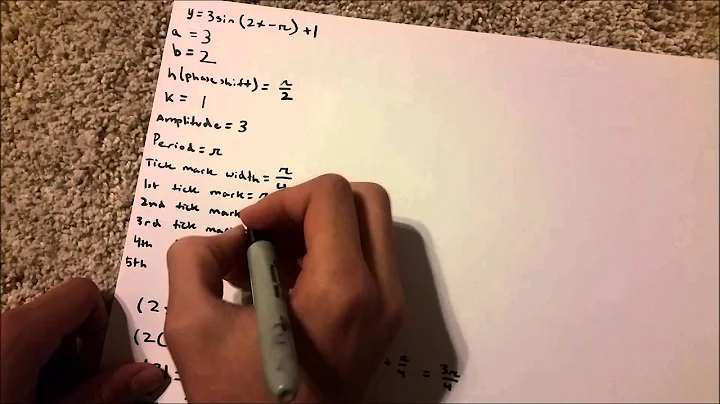 y = 3sin(2x - π) + 1
a = 3
b = 2
h (phase shift) = π/2
k = 1
Amplitude = 3
Period = π
Tick mark width = π/4
1st tick mark =
2nd tick mark
3rd tick
4th
5th
(2
(2(
= 3π/2